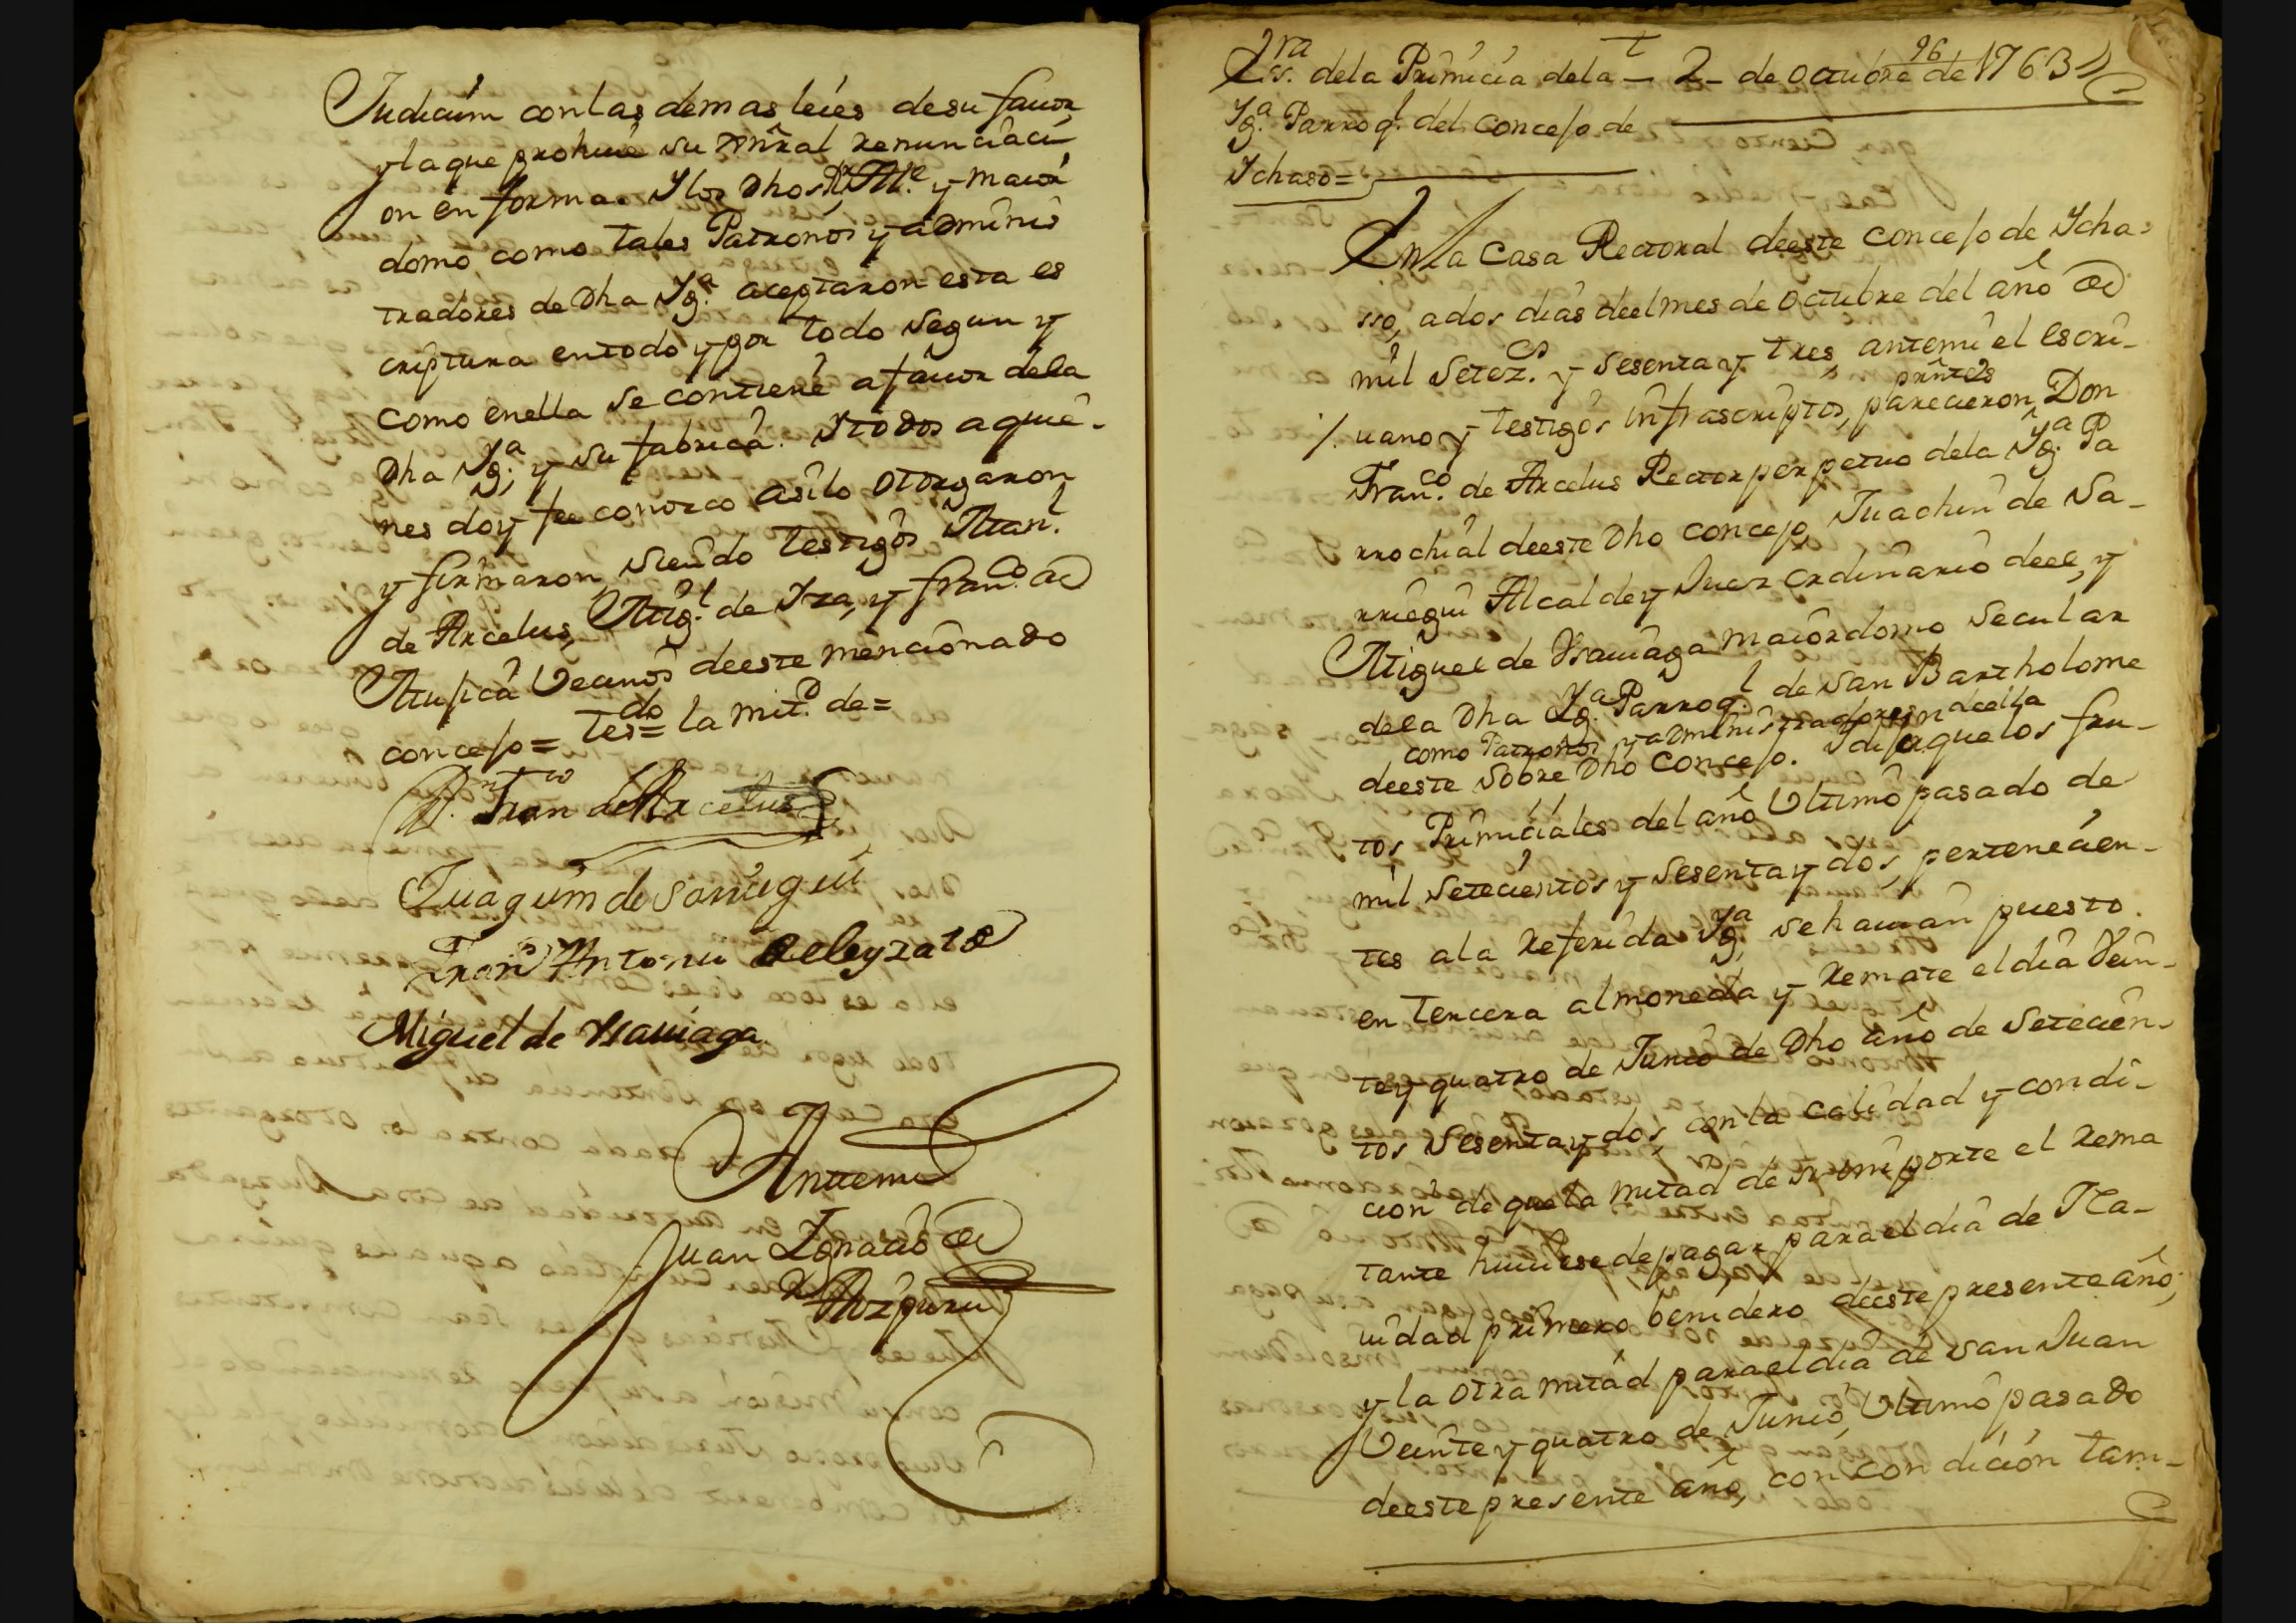 Judicium con las demas leies de su fauor,
y la que prohiue su gñral renunciaci
on en forma. Y los Dhos Rr, Alle. y maior
domo, como tales Patronos y adminis
tradores de Dha Yga. aceptaron esta es
criptura en todo y por todo segun y
como en ella se contiene a fauor de la
Dha Yga. y su fabrica. Y todos a quie-
nes doy fee conozco asi lo otorgaron
y firmaron, siendo testigos Man.l
de Arcelus, Mig.l de Yza, y Fran.co de
Mujica Vecinos de este mencionado
concejo = tes.do = la mit.d de =
D.n Fran.co de Arcelus
Juaquim de Sarriegui
Fran.co Antonio de leyzalde
Miguel de Ysauiaga
Antemi
Juan Ignacio de
Azpuru
96
Es.ra de la Primicia de la 2 de octubre de 1763
Yg.a Parroq.l del concejo de
Ychaso =
En la Casa Rectoral de este concejo de Ycha-
sso, a dos dias de el mes de octubre del año de
mil setez.os y sesenta y tres, ante mi el escri-
uano y testigos infrascriptos, parecieron prntes Don
Fran.co de Arcelus Rector perpetuo de la Yg.a Pa
rrochial de este Dho concejo, Juachin de Sa-
rriegui Alcalde y Juez ordinario de el, y
Miguel de Ysauiaga maiordomo secular
de la Dha Yg.a Parroq.l de San Bartholome
como Patronos y administradores de ella
de este sobre Dho Concejo. Y dijeron que los fru-
tos Primiciales del año Ultimo pasado de
mil setecientos y sesenta y dos, pertenecien-
tes a la referida Yg.a se hauian puesto
en tercera almoneda y remate el dia Vein-
te y quatro de Junio de Dho año de setecien-
tos sesenta y dos, con la calidad y condi-
cion de que la mitad de su importe el rema
tante huuiese de pagar para el dia de Na-
uidad primero benidero de este presente año,
y la otra mitad para el dia de San Juan
Veinte y quatro de Junio, Ultimo pasado
de este presente año, con condicion tam-